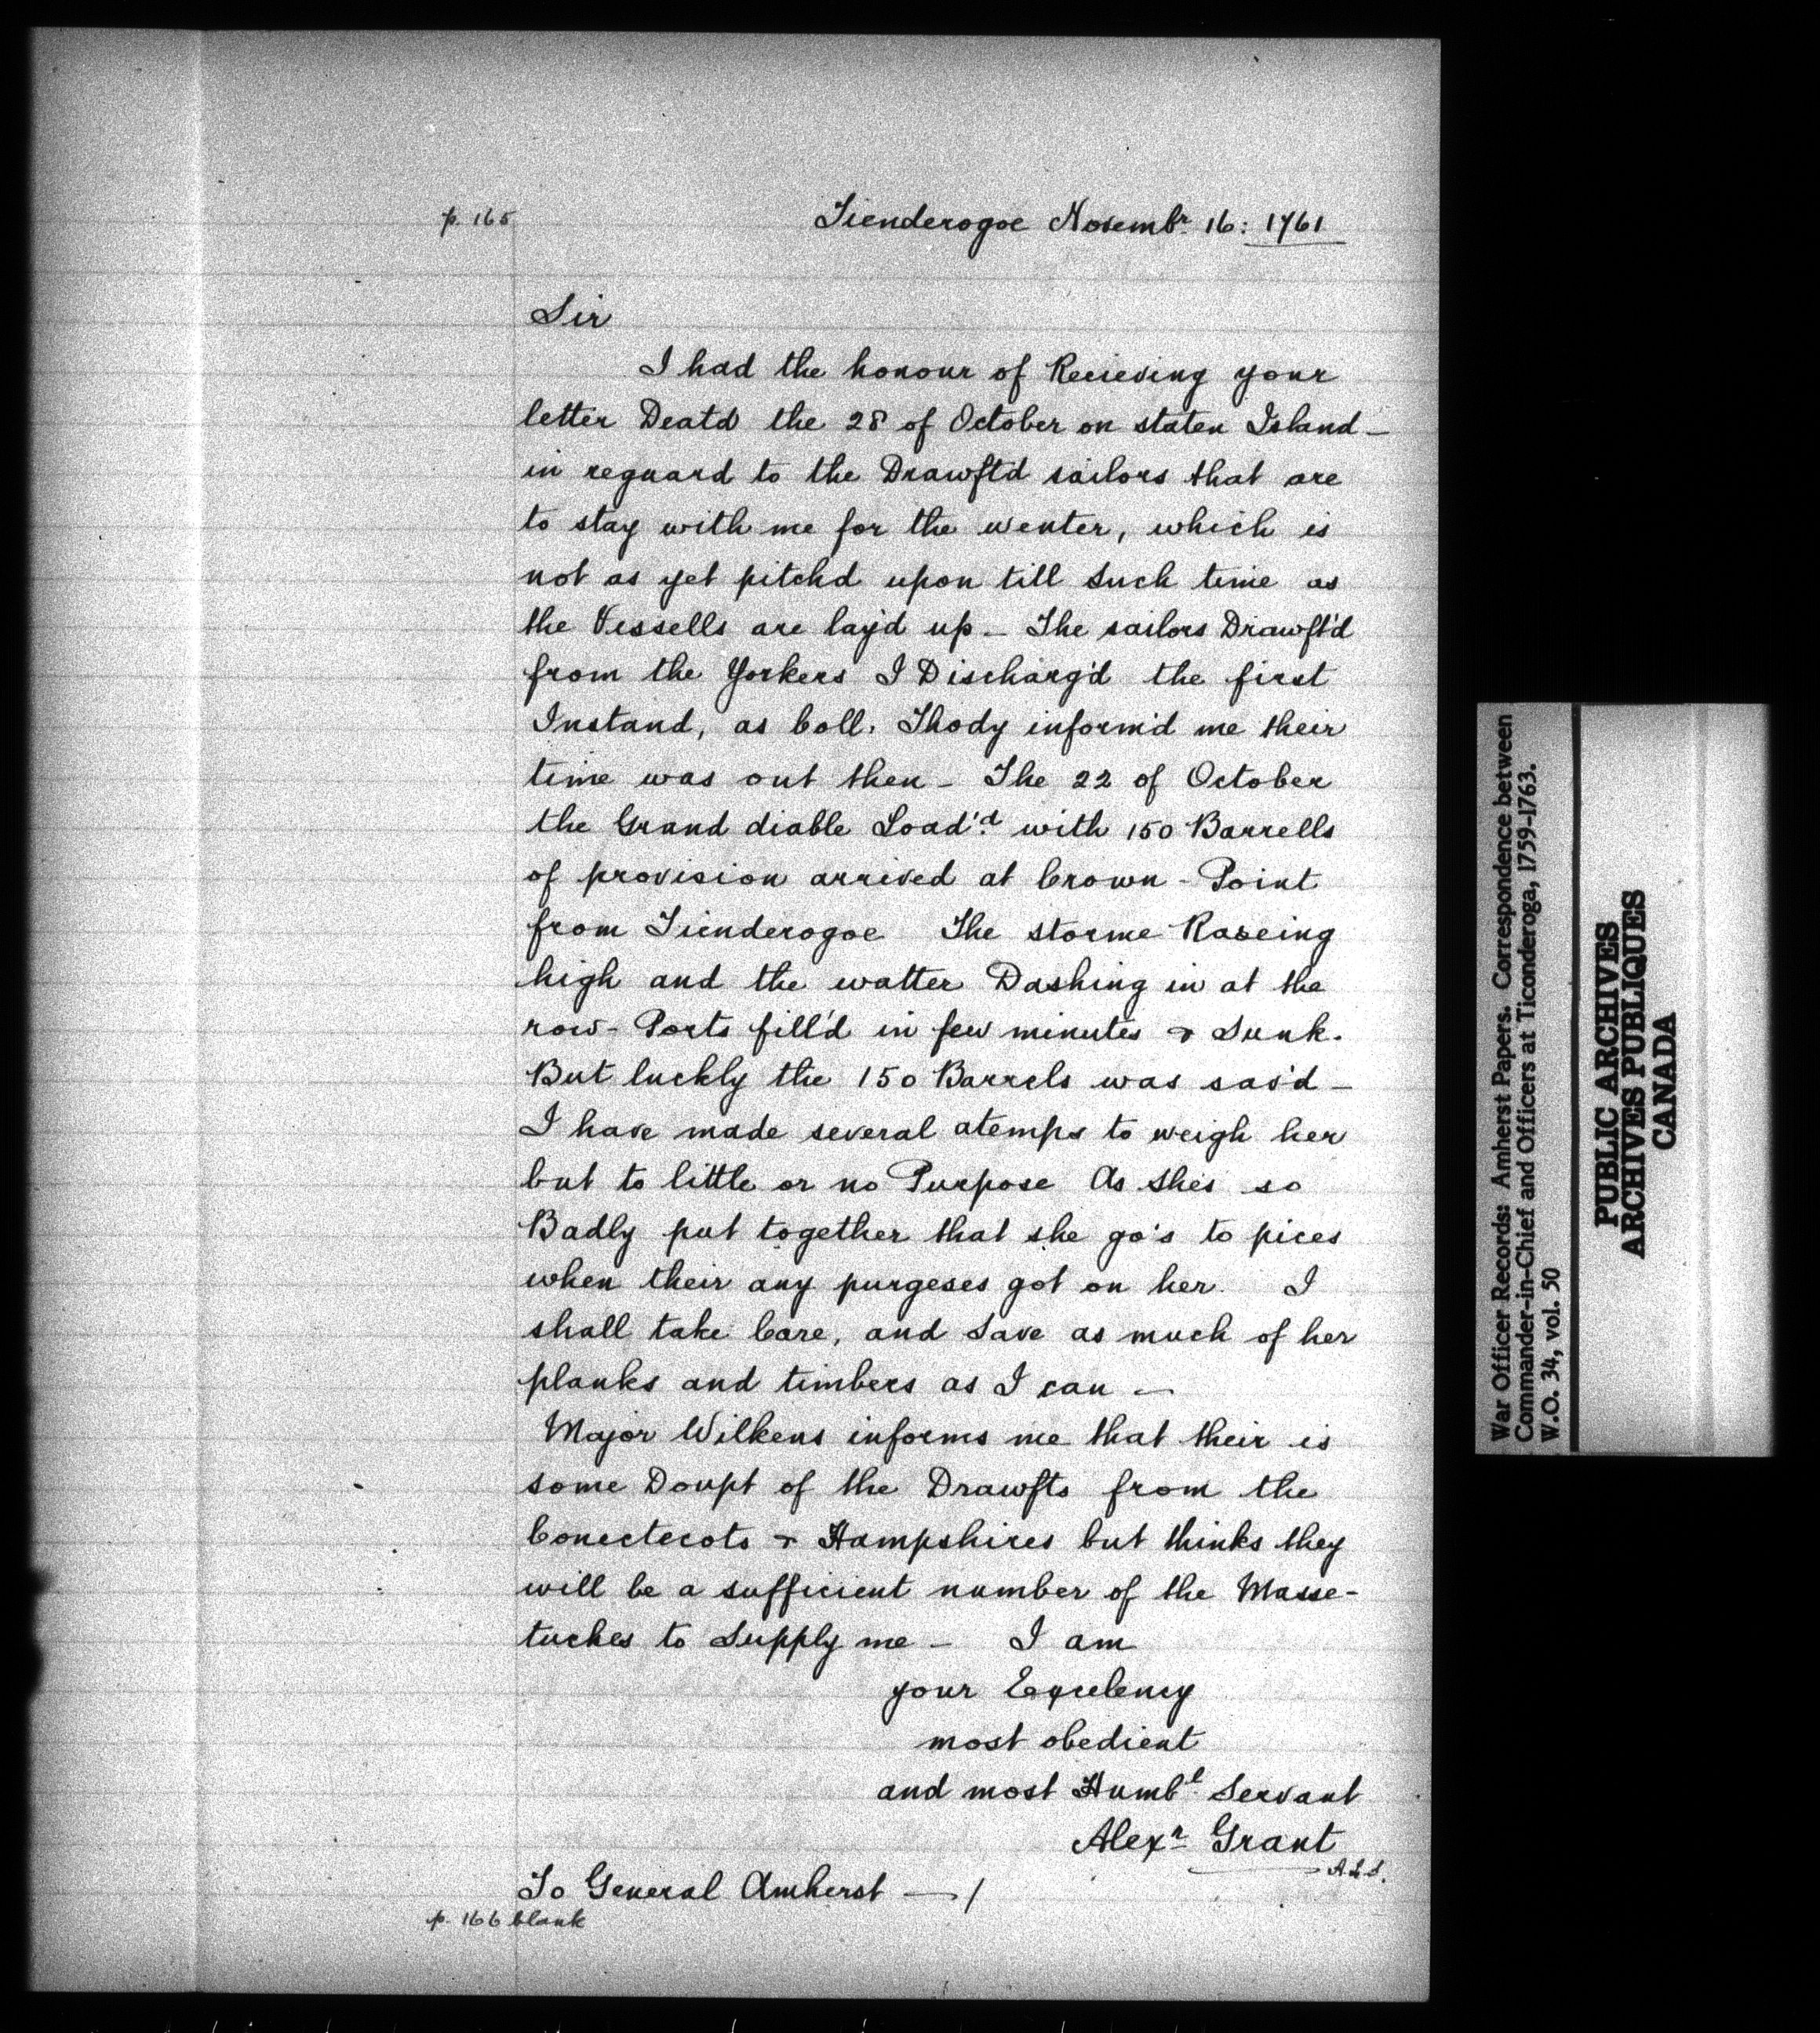 p. 165
Tienderogoe Novembr 16: 1761
Sir
I had the honour of Recieving your
letter Deatd the 28 of October on staten Island –
in reguard to the Drawftd sailors that are
to stay with me for the wenter, which is
not as yet pitchd upon till Such time as
the Vessells are lay'd up – The sailors Drawft'd
from the Yorkers I Discharg'd the first
Instand, as Coll. Thody inform'd me their
time was out then – The 22 of October
the Grand diable Load'd with 150 Barrells
of provision arrived at Crown - Point
from Tienderogoe The storme Raseing
high and the watter Dashing in at the
row - Ports fill'd in few minutes & Sunk.
But luckly the 150 Barrels was sav'd –
I have made several atemps to weigh her
but to little or no Purpose As shes so
Badly put together that she go's to pices
when their any purgeses got on her. I
shall take Care, and Save as much of her
planks and timbers as I can –
Major Wilkens informs me that their is
some Doupt of the Drawfts from the
Conectecots & Hampshires but thinks they
will be a sufficient number of the Masse-
tuches to Supply me – I am
your Exculency
most obedient
and most Humbl Servant
Alexr Grant
A.L.S.
To General Amherst — /
p. 166 blank
War Officer Records: Amherst Papers. Correspondence between
Commander-in-Chief and Officers at Ticonderoga, 1759-1763.
W.O. 34, vol. 50
PUBLIC ARCHIVES
ARCHIVES PUBLIQUES
CANADA